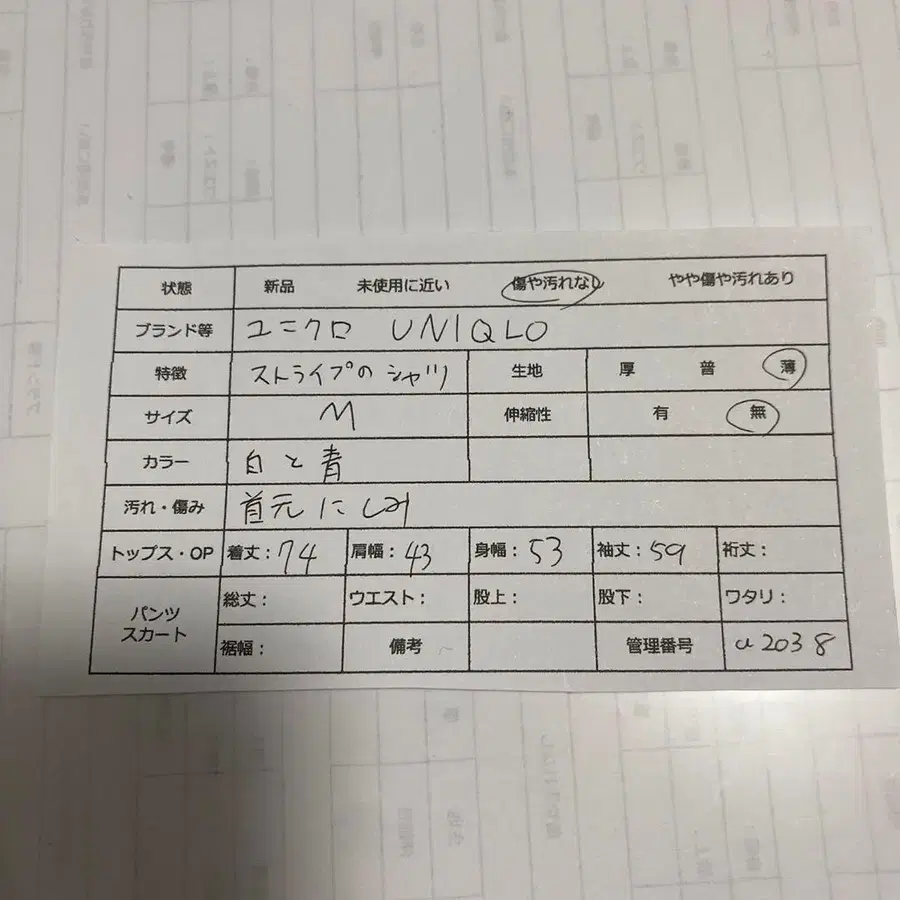 状態 新品 未使用に近い 傷や汚れなし やや傷や汚れあり
ブランド等 ユニクロ UNIQLO
特徴 ストライプの シャツ 生地 厚 普 薄
サイズ M 伸縮性 有 無
カラー 白と青
汚れ・傷み 首元にしみ
トップス・OP 着丈:74 肩幅:43 身幅:53 袖丈:59 裄丈:
パンツ スカート 総丈: ウエスト: 股上: 股下: ワタリ:
裾幅: 備考 管理番号 u2038